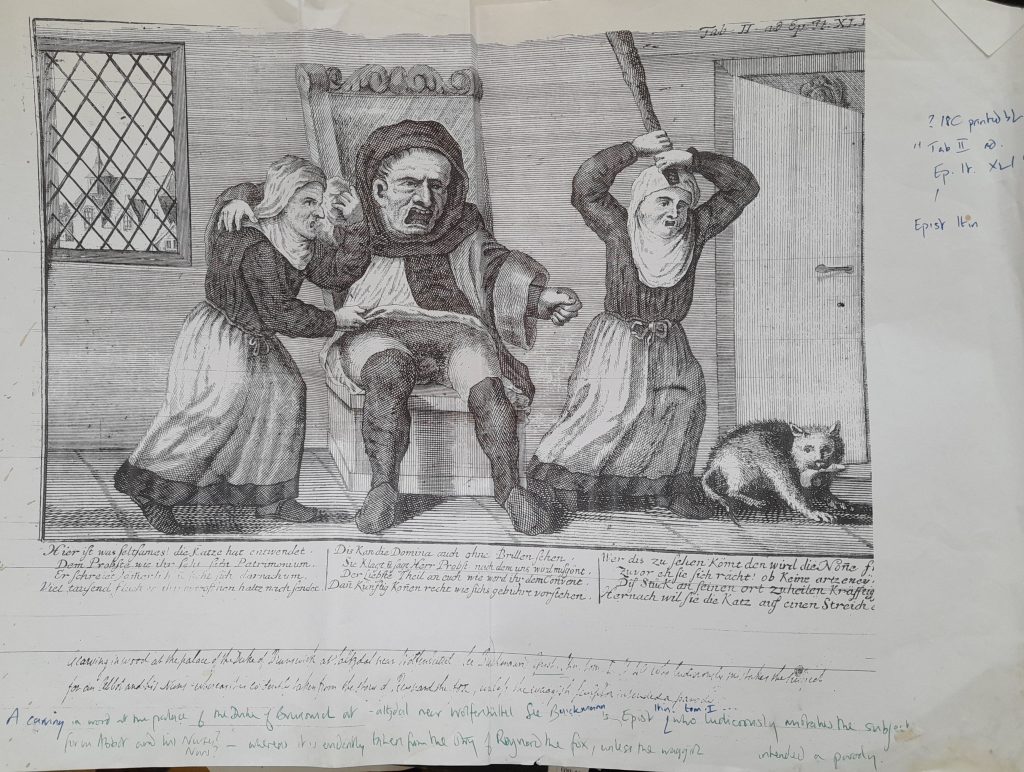 Tab II ad Ep. It. XLI
? 18C printed bk
" Tab II ad.
Ep. It. XLI "
Epist Itin
Hier ist was seltsames! die Katze hat entwendet.
Dem Probsten wie ihr seht sein Patrimonium.
Er schreiet sich darnach um.
Viel tausend
Dis Kan die Domina auch ohne Brillen sehen.
Sie Klagt sagt Herr Probst nach dem uns word misgönt.
Der liebste Theil an euch wie word ihr dem Convent.
Das Künftig Konen recht wie sichs gebuhrt vorstehen.
Wer das zu sehen Komt den wird die None
Zuvor eh sie sich racht! ob Keine artzeney
Dis Stuck an seinen ort zuheilen Kraefftig
Hernach wil sie die Katz auf einen Streich
A carving in wood at the palace of the Duke of Brunswick at near Wolfenbuttel See Epist. Itin tom I. who ludicrously mistakes the subject
for an Abbot and his Nuns whereas it is evidently taken from the story of Renard the fox, unless the waggish intended a parody.
A carving in wood at the palace of the Duke of Brunswick at -altzdal near Wolfenbüttel See Bruckmann's Epist Itin tom I... who ludicrously mistakes the subject
for an Abbot and his Nurse? Nuns? - whereas it is evidently taken from the story of Reynard the fox, unless the waggish intended a parody.